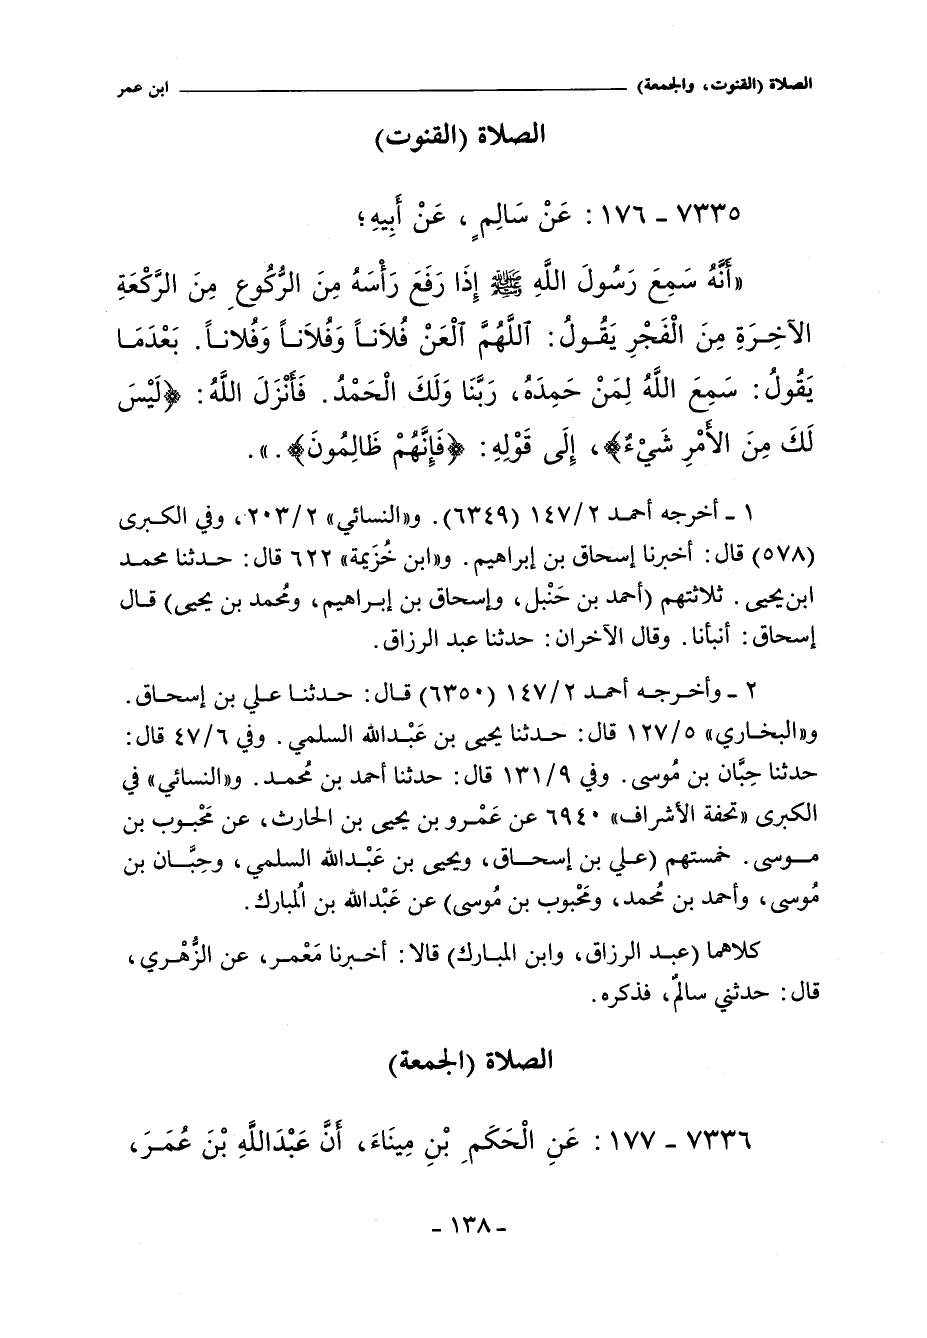 الصلاة (القنوت، والجمعة) ــــــــــــــــــــ ابن عمر
الصلاة (القنوت)
٧٣٣٥ - ١٧٦ : عَنْ سَالِمٍ ، عَنْ أَبِيهِ ؛
«أَنَّهُ سَمِعَ رَسُولَ اللَّهِ ﷺ إِذَا رَفَعَ رَأْسَهُ مِنَ الرُّكُوعِ مِنَ الرَّكْعَةِ
الآخِرَةِ مِنَ الْفَجْرِ يَقُولُ : ٱللَّهُمَّ ٱلْعَنْ فُلاَناً وَفُلاَناً وَفُلاناً. بَعْدَمَا
يَقُولُ : سَمِعَ اللَّهُ لِمَنْ حَمِدَهُ، رَبَّنَا وَلَكَ الْحَمْدُ. فَأَنْزَلَ اللَّهُ : ﴿لَيْسَ
لَكَ مِنَ الأَمْرِ شَيْءٌ﴾، إِلَى قَوْلِهِ : ﴿فَإِنَّهُمْ ظَالِمُونَ﴾ . ».
١ - أخرجه أحمد ١٤٧/٢ (٦٣٤٩). و«النسائي» ٢٠٣/٢، وفي الكبرى
(٥٧٨) قال : أخبرنا إسحاق بن إبراهيم . و«ابن خُزَيمة» ٦٢٢ قال : حدثنا محمد
ابن يحيى . ثلاثتهم (أحمد بن حَنْبل، وإسحاق بن إبراهيم، ومُحمد بن يحيى) قال
إسحاق : أنبأنا. وقال الآخران : حدثنا عبد الرزاق.
٢ - وأخرجه أحمد ١٤٧/٢ (٦٣٥٠) قال : حدثنا علي بن إسحاق .
و«البخاري» ١٢٧/٥ قال : حدثنا يحيى بن عَبْدالله السلمي . وفي ٤٧/٦ قال :
حدثنا حِبَّان بن مُوسى. وفي ١٣١/٩ قال : حدثنا أحمد بن مُحمد. و«النسائي» في
الكبرى «تحفة الأشراف» ٦٩٤٠ عن عَمْرو بن يحيى بن الحارث، عن مَحْبوب بن
موسى . خمستهم (علي بن إسحاق، ويحيى بن عَبْدالله السلمي، وحِبَّان بن
مُوسى، وأحمد بن مُحمد، ومَحْبوب بن مُوسى) عن عَبْدالله بن الْمُبارك.
كلاهما (عبد الرزاق، وابن المبارك) قالا : أخبرنا مَعْمر، عن الزُّهْري،
قال : حدثني سالمٌ، فذكره .
الصلاة (الجمعة)
٧٣٣٦ - ١٧٧ : عَنِ الْحَكَمِ بْنِ مِينَاءَ، أَنَّ عَبْدَاللَّهِ بْنَ عُمَرَ،
- ١٣٨ -